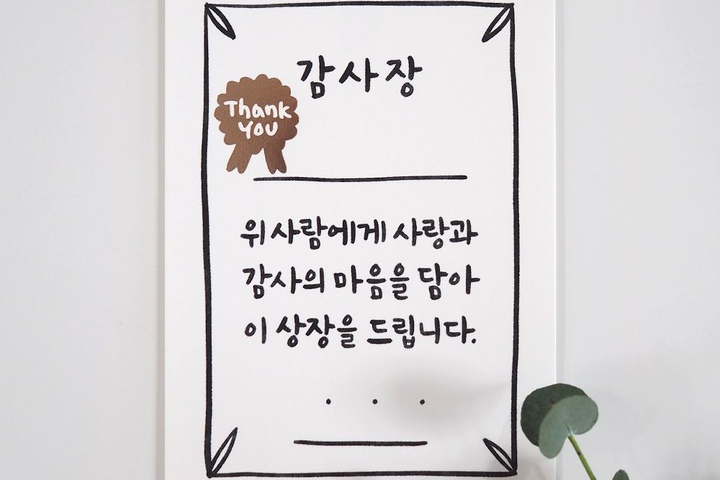 감사장
Thank
You
위 사람에게 사랑과
감사의 마음을 담아
이 상장을 드립니다.
. . .